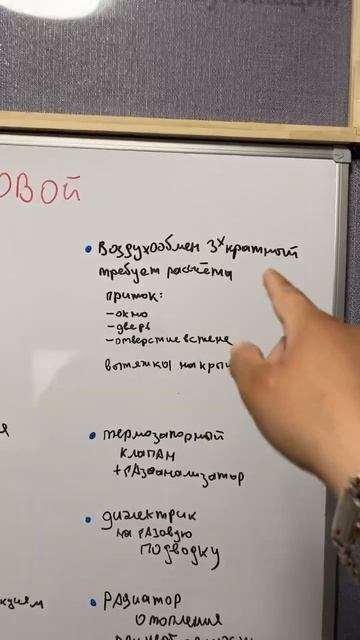 ОВОЙ
• Воздухообмен 3х кратный
требует расчёта
приток:
- окно
- дверь
- отверстие в стене
вытяжка на кры
• термозапорный
клапан
+ газоанализатор
• диэлектрик
на газовую
подводку
• Радиатор
отопления